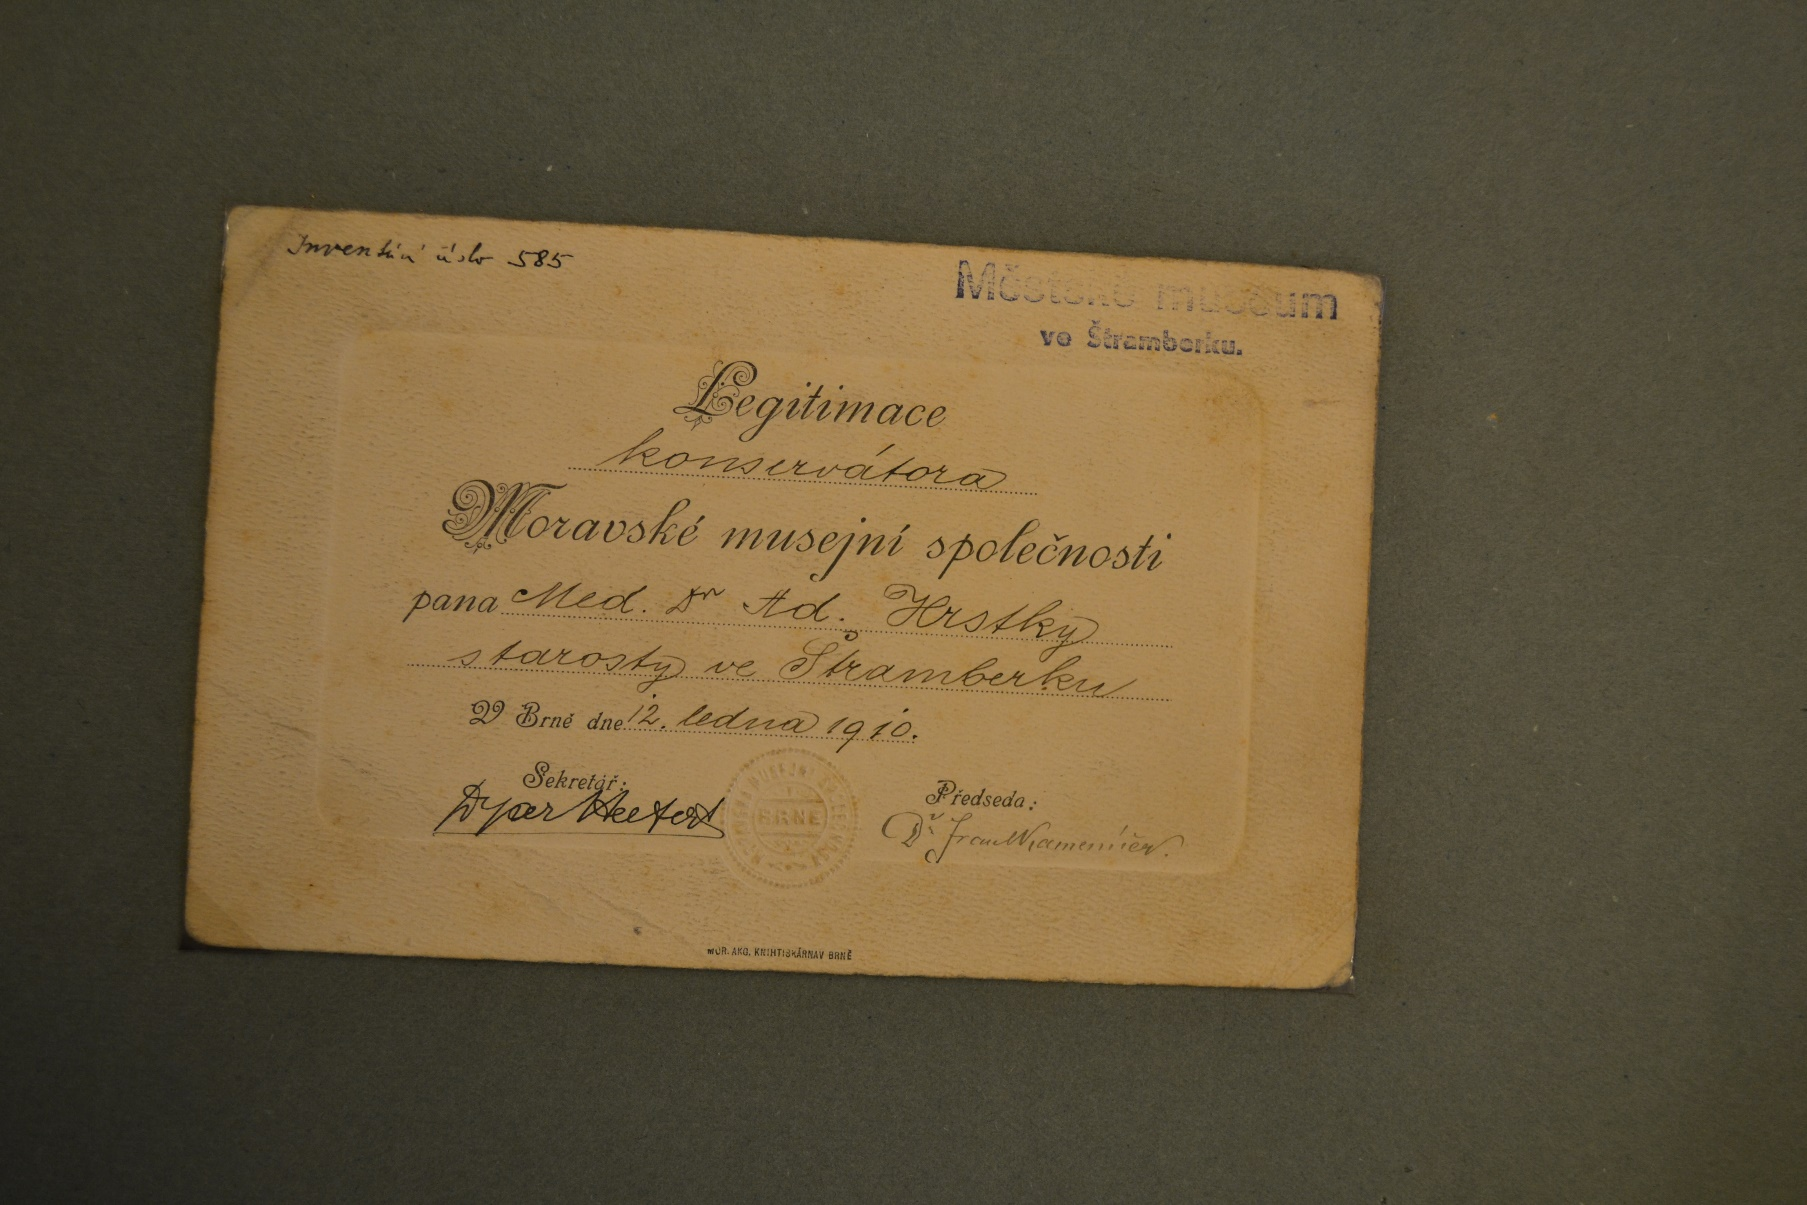 Inventární číslo 585
Městské museum
ve Štramberku.
Legitimace
konservátora
Moravské musejní společnosti
pana Med. Dr Ad. Hrstky
starosty ve Štramberku
V Brně dne 12. ledna 1910.
Sekretář:
Předseda:
Dr. Fran. Kameníček.
BRNĚ
MOR. AKC. KNIHTISKÁRNA V BRNĚ